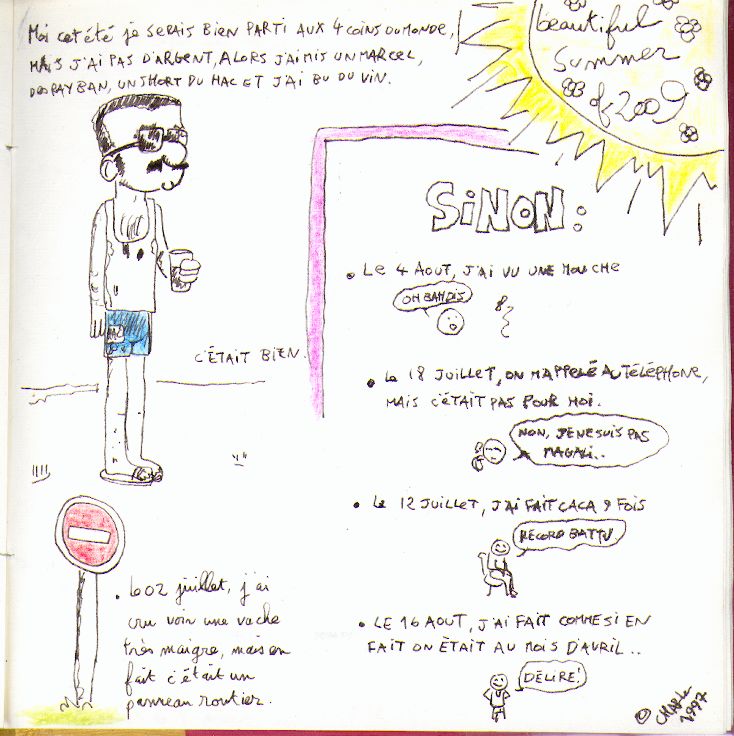 Moi cet été je serais bien parti aux 4 coins du monde,
mais j'ai pas d'argent, alors j'ai mis un marcel,
des rayban, un short du mac et j'ai bu du vin.
beautiful
summer
of 2009
SiNON:
C'était bien.
• Le 4 aout, j'ai vu une mouche
OH BAH DIS
• Le 18 juillet, on m'appelé au téléphone,
mais c'était pas pour moi.
NON, JE NE SUIS PAS
MAGALI..
• Le 12 juillet, j'ai fait caca 9 fois
RECORD BATTU
• Le 02 juillet, j'ai
cru voir une vache
très maigre, mais en
fait c'était un
panneau routier.
• Le 16 aout, j'ai fait comme si en
fait on était au mois d'avril..
DÉLIRE!
©
1997